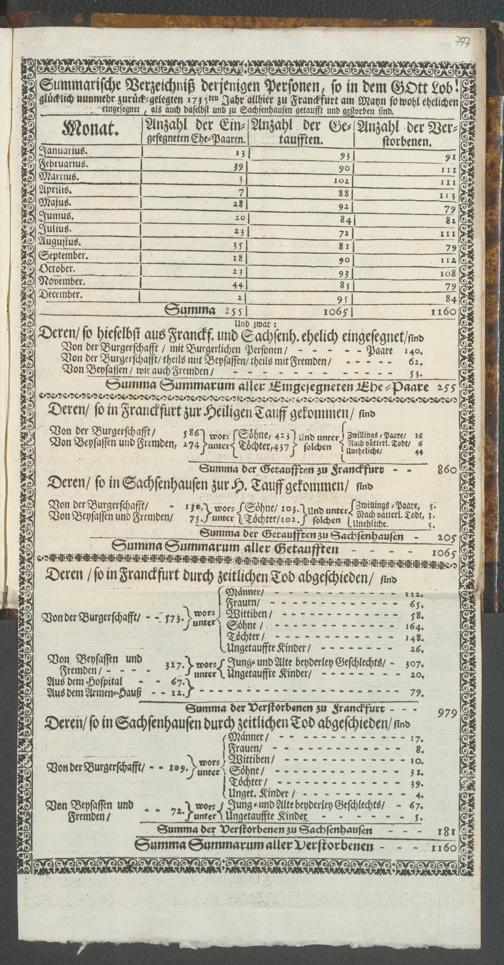 797
Summarische Verzeichniß derjenigen Personen, so in dem GOtt Lob!
glücklich nunmehr zurück-gelegten 1735ten Jahr allhier zu Franckfurt am Mayn so wohl ehelichen
eingesegnet, als auch daselbst und zu Sachsenhausen getaufft und gestorben sind.
Monat. Anzahl der Ein- Anzahl der Ge- Anzahl der Ver-
gesegneten Ehe-Paaren. taufften. storbenen.
Januarius. 13 93 91
Februarius. 39 90 111
Martius. 3 102 111
Aprilis. 7 88 113
Majus. 28 92 79
Junius. 20 84 82
Julius. 23 72 111
Augustus. 35 81 79
September. 18 90 112
October. 23 93 108
November. 44 85 79
December. 2 95 84
Summa 255 1065 1160
Und zwar:
Deren/ so hieselbst aus Franckf. und Sachsenh. ehelich eingesegnet/ sind
Von der Burgerschafft / mit Burgerlichen Personen / - - - - - Paare 140.
Von der Burgerschafft/ theils mit Beysassen/ theils mit Fremden/ - - - - - 62.
Von Beysassen / wie auch Fremden / - - - - - - - - 53.
Summa Summarum aller Eingesegneten Ehe-Paare 255
Deren/ so in Franckfurt zur Heiligen Tauff gekommen/ sind
Von der Burgerschafft/ 586 wor- Söhne, 423 Und unter Zwillings-Paare, 16
Von Beysassen und Fremden, 274 unter Töchter, 437 solchen Nach vätterl. Todt, 6
Uneheliche, 44
Summa der Getaufften zu Franckfurt - - 860
Deren/ so in Sachsenhausen zur H. Tauff gekommen/ sind
Von der Burgerschafft/ - 130. wor- Söhne/ 103. Und unter Zwillings-Paare, 5.
Von Beysassen und Fremden/ 75. unter Töchter/ 102. solchen Nach vätterl. Todt, 3.
Unehliche. 5.
Summa der Getaufften zu Sachsenhausen - 205
Summa Summarum aller Getaufften - - - - 1065
Deren / so in Franckfurt durch zeitlichen Tod abgeschieden/ sind
Von der Burgerschafft/ - - 573. wor- unter
Männer/ - - - - - - - - 112.
Frauen/ - - - - - - - - 65.
Wittiben/ - - - - - - - - 58.
Söhne / - - - - - - - - 164.
Töchter/ - - - - - - - - 148.
Ungetauffte Kinder/ - - - - - 26.
Von Beysassen und 327. wor- Jung- und Alte beyderley Geschlechts/ - 307.
Fremden/ - - - - unter Ungetauffte Kinder/ - - - - - 20.
Aus dem Hospital - - 67.
Aus dem Armen-Hauß - - 12. - - - - - - - - 79.
Summa der Verstorbenen zu Franckfurt - - - 979
Deren/ so in Sachsenhausen durch zeitlichen Tod abgeschieden/ sind
Von der Burgerschafft/ - - 109. wor- unter
Männer / - - - - - - - - 17.
Frauen/ - - - - - - - - 8.
Wittiben/ - - - - - - - - 10.
Söhne/ - - - - - - - - 31.
Töchter/ - - - - - - - - 39.
Unget. Kinder / - - - - - - 4.
Von Beysassen und - - 72. wor- Jung- und Alte beyderley Geschlechts/ - 67.
Fremden / unter Ungetauffte Kinder - - - - - 5.
Summa der Verstorbenen zu Sachsenhausen - - - 181
Summa Summarum aller Verstorbenen - - - 1160